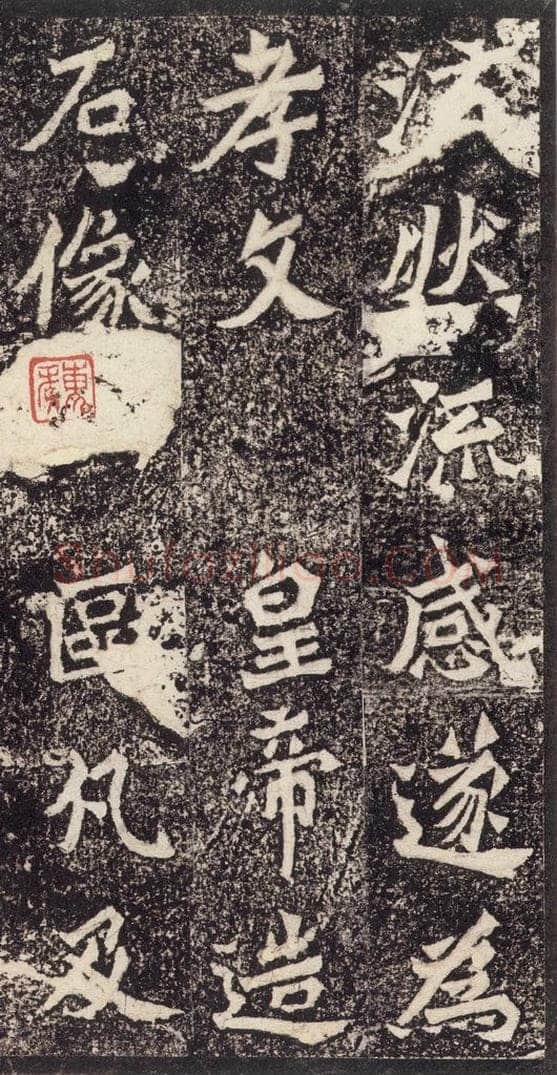 泫然流感遂為
孝文皇帝造
石像區凡及